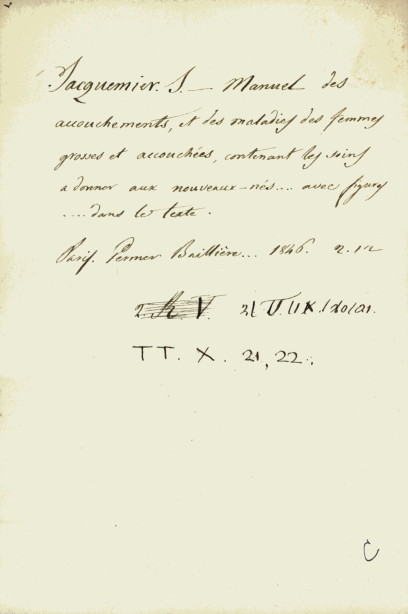 Jacquemier. J. — Manuel des
accouchements, et des maladies des femmes
grosses et accouchées, contenant les soins
a donner aux nouveaux-nés.... avec figures
....dans le texte.
Paris. Germer Baillière... 1846. 2. 12
TT. X. 21, 22.
C